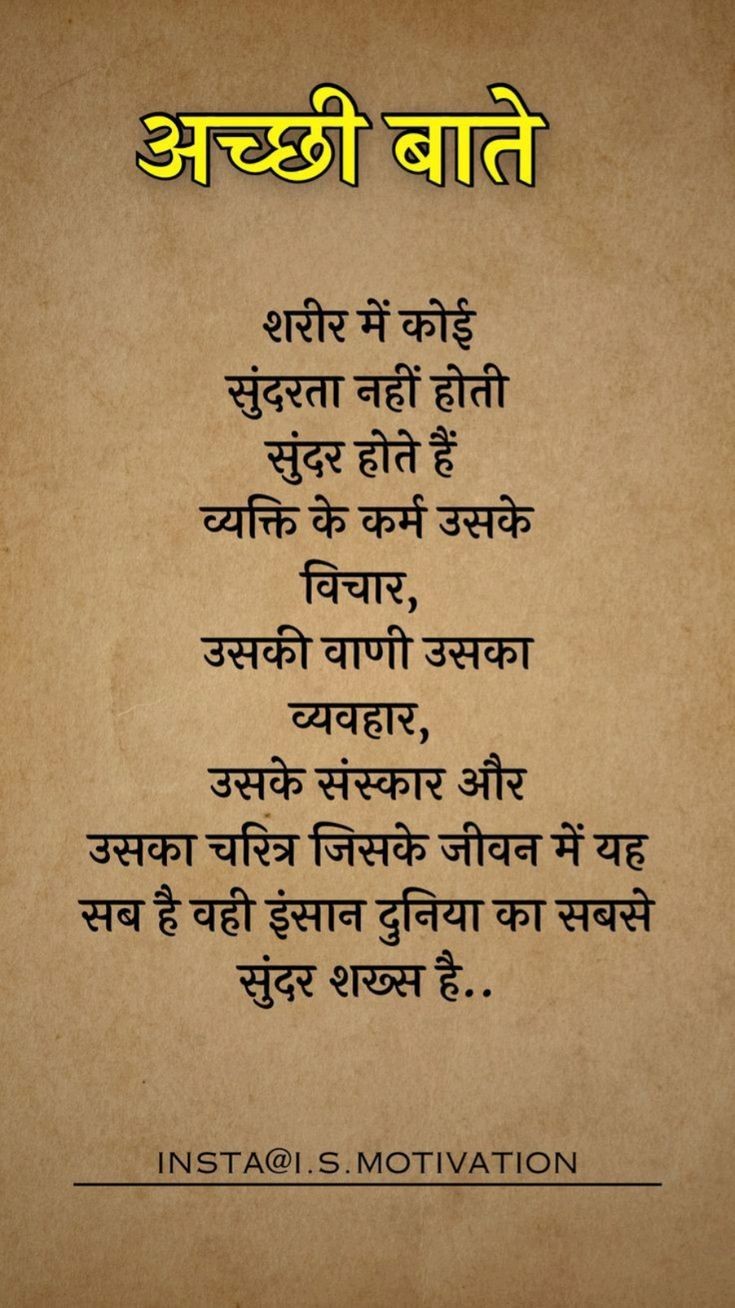 अच्छी बाते
शरीर में कोई
सुंदरता नहीं होती
सुंदर होते हैं
व्यक्ति के कर्म उसके
विचार,
उसकी वाणी उसका
व्यवहार,
उसके संस्कार और
उसका चरित्र जिसके जीवन में यह
सब है वही इंसान दुनिया का सबसे
सुंदर शख्स है..
INSTA@I.S.MOTIVATION